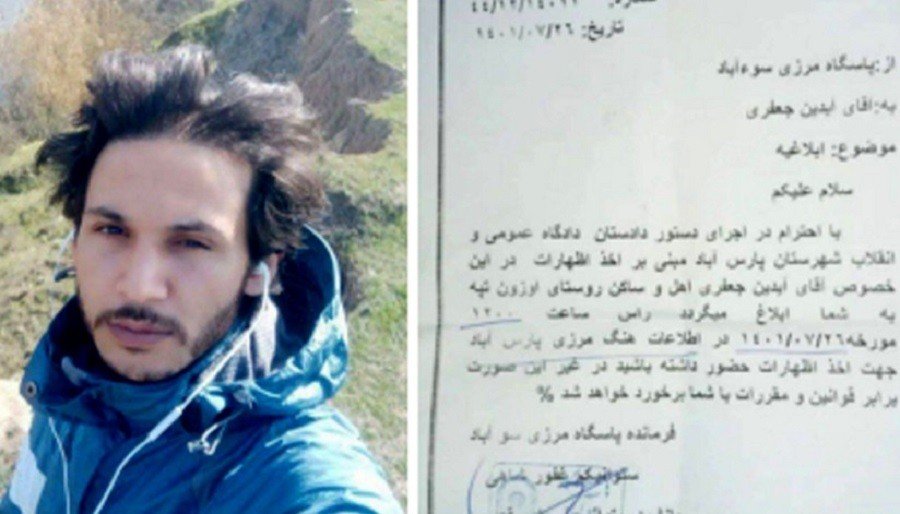 شماره: ۴۴/۱۲/۱۴۰۷۲
تاریخ: ۱۴۰۱/۰۷/۲۶
از:پاسگاه مرزی سوءآباد
به:آقای آیدین جعفری
موضوع: ابلاغیه
سلام علیکم
با احترام در اجرای دستور دادستان دادگاه عمومی و
انقلاب شهرستان پارس آباد مبنی بر اخذ اظهارات در این
خصوص آقای آیدین جعفری اهل و ساکن روستای اوزون تپه
به شما ابلاغ میگردد راس ساعت ۱۲۰۰
مورخه ۱۴۰۱/۰۷/۲۶ در اطلاعات هنگ مرزی پارس آباد
جهت اخذ اظهارات حضور داشته باشید در غیر این صورت
برابر قوانین و مقررات با شما برخورد خواهد شد %
فرمانده پاسگاه مرزی سو آباد
ستوانیکم غفور